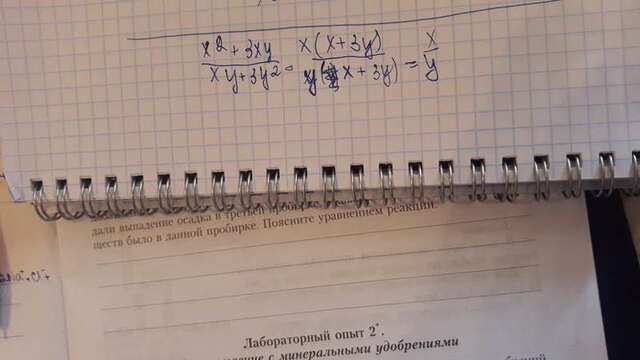 x² + 3xy / xy + 3y² = x(x + 3y) / y(x + 3y) = x / y
дали выпадение осадка в третьей
ществ было в данной пробирке. Поясните уравнением реакции.
Лабораторный опыт 2*.
с минеральными удобрениями